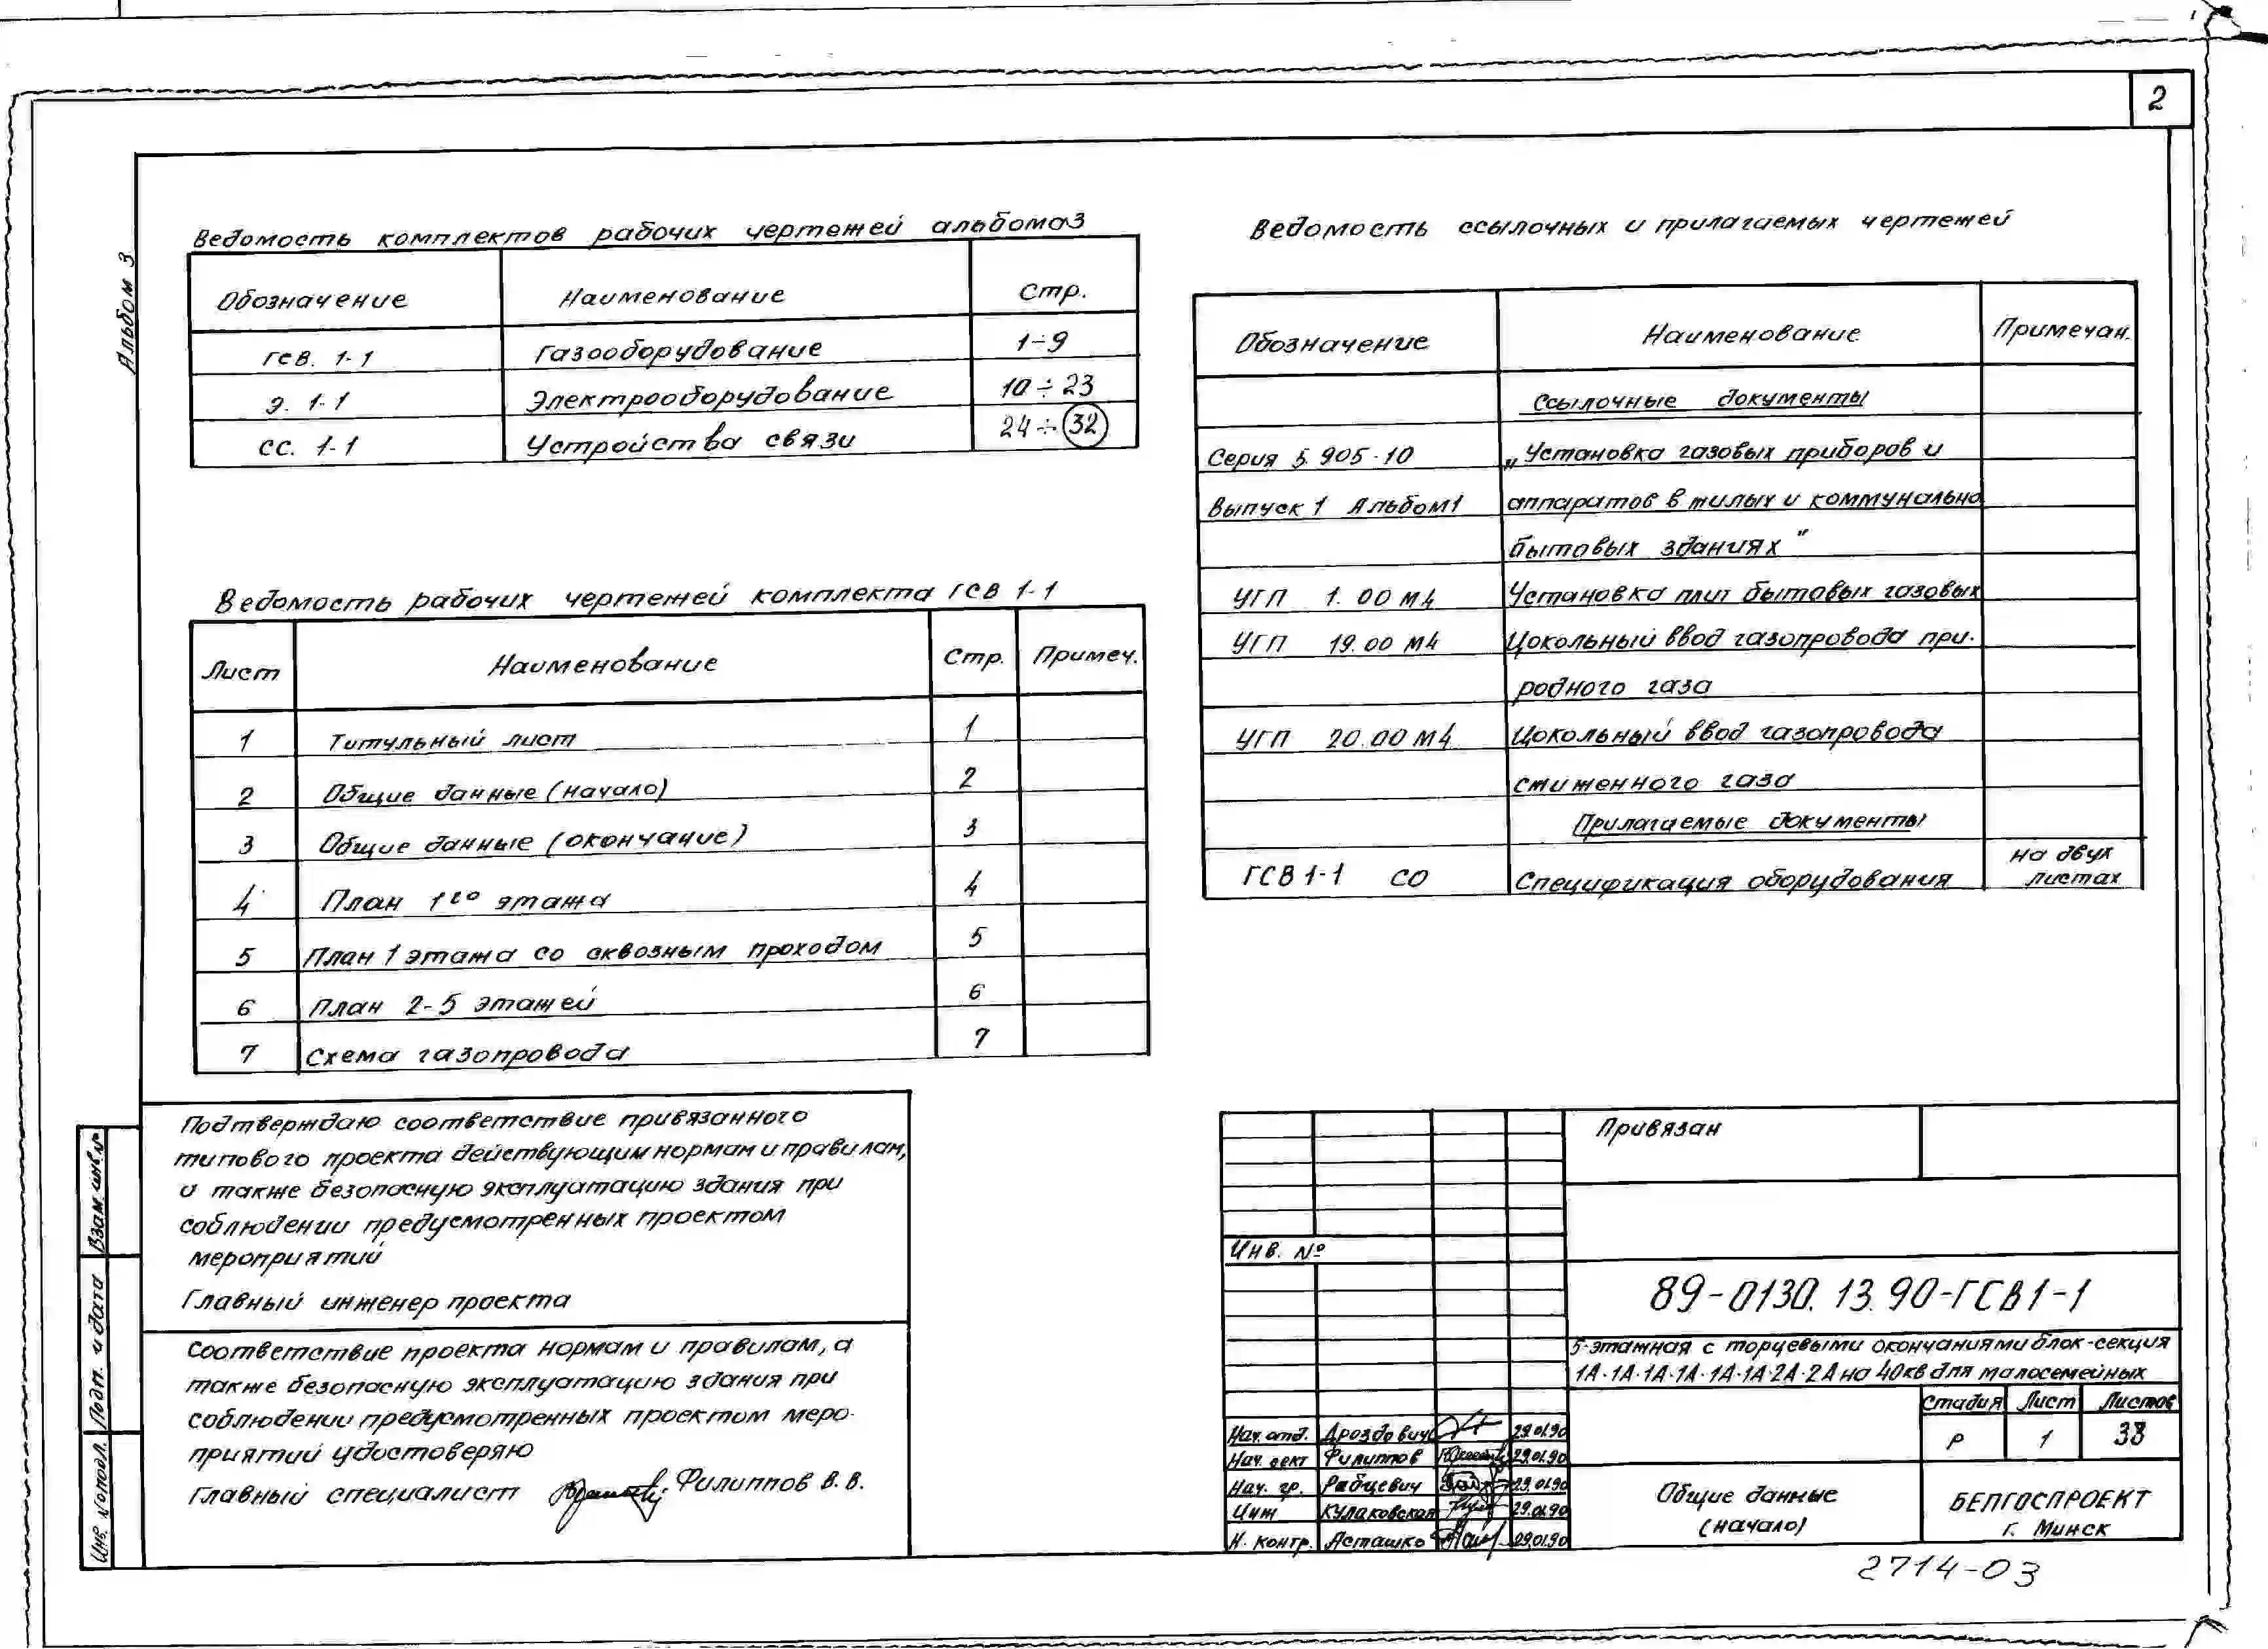 2
Альбом 3
Ведомость комплектов рабочих чертежей альбома 3
Обозначение Наименование Стр.
ГСВ. 1-1 Газооборудование 1÷9
Э. 1-1 Электрооборудование 10÷23
СС. 1-1 Устройства связи 24÷32
Ведомость рабочих чертежей комплекта ГСВ 1-1
Лист Наименование Стр. Примеч.
1 Титульный лист 1
2 Общие данные (начало) 2
3 Общие данные (окончание) 3
4 План 1го этажа 4
5 План 1 этажа со сквозным проходом 5
6 План 2-5 этажей 6
7 Схема газопровода 7
Ведомость ссылочных и прилагаемых чертежей
Обозначение Наименование Примечан.
Ссылочные документы
Серия 5.905-10 „Установка газовых приборов и
Выпуск 1 Альбом 1 аппаратов в жилых и коммунально
бытовых зданиях"
УГП 1.00 М4 Установка плит бытовых газовых
УГП 19.00 М4 Цокольный ввод газопровода при-
родного газа
УГП 20.00 М4 Цокольный ввод газопровода
сжиженного газа
Прилагаемые документы
ГСВ 1-1 СО Спецификация оборудования на двух
листах
Подтверждаю соответствие привязанного
типового проекта действующим нормам и правилам,
а также безопасную эксплуатацию здания при
соблюдении предусмотренных проектом
мероприятий
Главный инженер проекта
Соответствие проекта нормам и правилам, а
также безопасную эксплуатацию здания при
соблюдении предусмотренных проектом меро-
приятий удостоверяю
Главный специалист Филиппов В. В.
Взам. инв. №
Подп. и дата
Инв. № подл.
Привязан
Инв. №
89-0130.13.90-ГСВ1-1
5-этажная с торцевыми окончаниями блок-секция
1А-1А-1А-1А-1А-1А-2А-2А на 40 кв для малосемейных
Стадия Лист Листов
Р 1 38
Нач. отд. Дроздович 29.01.90
Нач. сект Филиппов 29.01.90
Нач. гр. Рабцевич 29.01.90
Инж Кулаковская 29.01.90
Н. контр. Асташко 29.01.90
Общие данные
(начало)
БЕЛГОСПРОЕКТ
г. Минск
2714-03